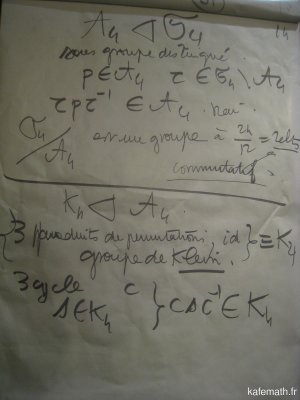 A₄ ◁ 𝔖₄
sous groupe distingué.
p ∈ A₄ τ ∈ 𝔖₄ \ A₄
τ p τ⁻¹ ∈ A₄.
𝔖₄/A₄ est un groupe à 24/12 = 2 elts
commutatif
K₄ ◁ A₄
{3 produits de permutations, id} ≡ K₄
groupe de Klein.
3 cycle c
s ∈ K₄ } c s c⁻¹ ∈ K₄
kafemath.fr